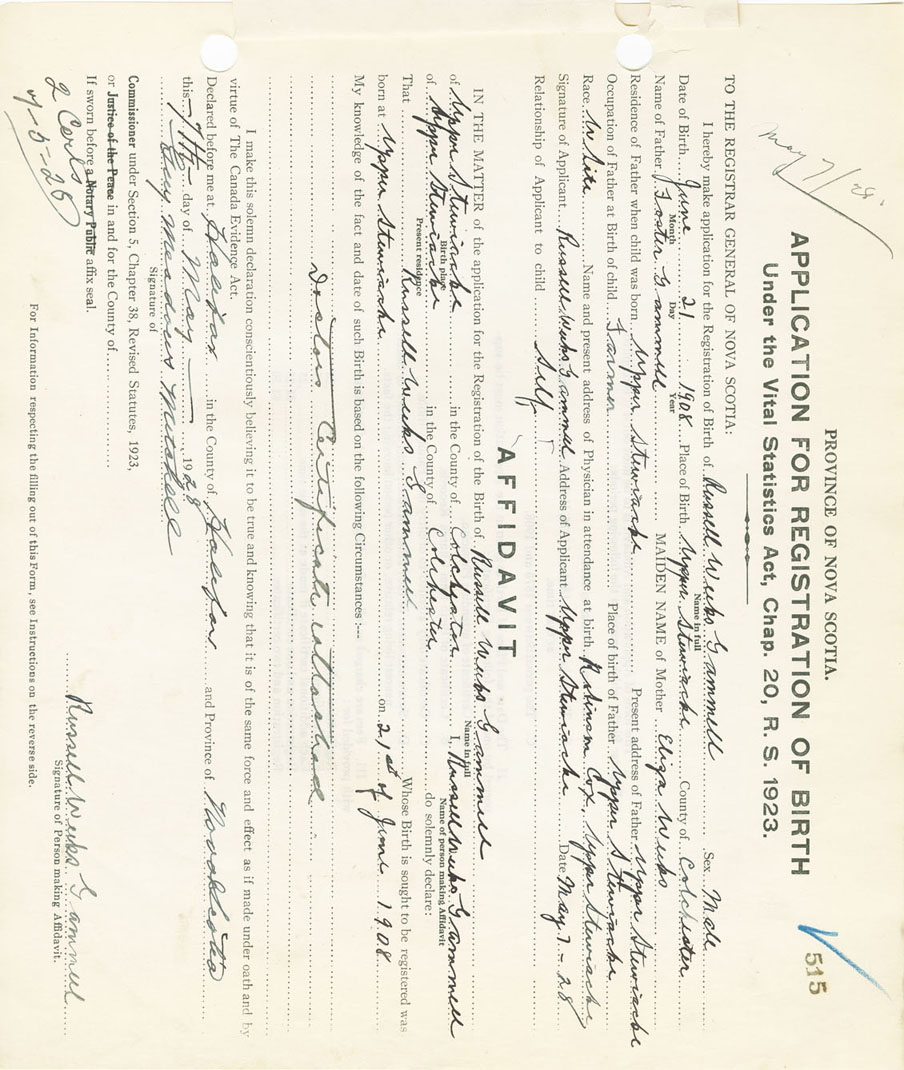 PROVINCE OF NOVA SCOTIA.
515
APPLICATION FOR REGISTRATION OF BIRTH
Under the Vital Statistics Act, Chap. 20, R. S. 1923.
May 7/28.
TO THE REGISTRAR GENERAL OF NOVA SCOTIA:
I hereby make application for the Registration of Birth of Russell Weeks Gammell Sex Male
Name in full
Date of Birth June 21 1908 Place of Birth Upper Stewiacke County of Colchester
Month Day Year
Name of Father Foster Gammell MAIDEN NAME of Mother Eliza Weeks
Residence of Father when child was born Upper Stewiacke Present address of Father Upper Stewiacke
Occupation of Father at Birth of child Farmer Place of birth of Father Upper Stewiacke
Race White Name and present address of Physician in attendance at birth Robinson Cox, Upper Stewiacke
Signature of Applicant Russell Weeks Gammell Address of Applicant Upper Stewiacke Date May 7-28
Relationship of Applicant to child Self
AFFIDAVIT
IN THE MATTER of the application for the Registration of the Birth of Russell Weeks Gammell
Name in full
of Upper Stewiacke in the County of Colchester I, Russell Weeks Gammell
Birth place Name of person making Affidavit
of Upper Stewiacke in the County of Colchester do solemnly declare:
Present residence
That Russell Weeks Gammell Whose Birth is sought to be registered was
born at Upper Stewiacke on 21st of June 1908
My knowledge of the fact and date of such Birth is based on the following Circumstances:—
Doctors Certificate attached.
I make this solemn declaration conscientiously believing it to be true and knowing that it is of the same force and effect as if made under oath and by
virtue of The Canada Evidence Act.
Declared before me at Halifax in the County of Halifax and Province of Nova Scotia
this 7th day of May 1928
Guy Meadows Mitchell
Signature of
Russell Weeks Gammell
Signature of Person making Affidavit.
Commissioner under Section 5, Chapter 38, Revised Statutes, 1923,
or Justice of the Peace in and for the County of
If sworn before a Notary Public affix seal.
2 Certs
For Information respecting the filling out of this Form, see Instructions on the reverse side.